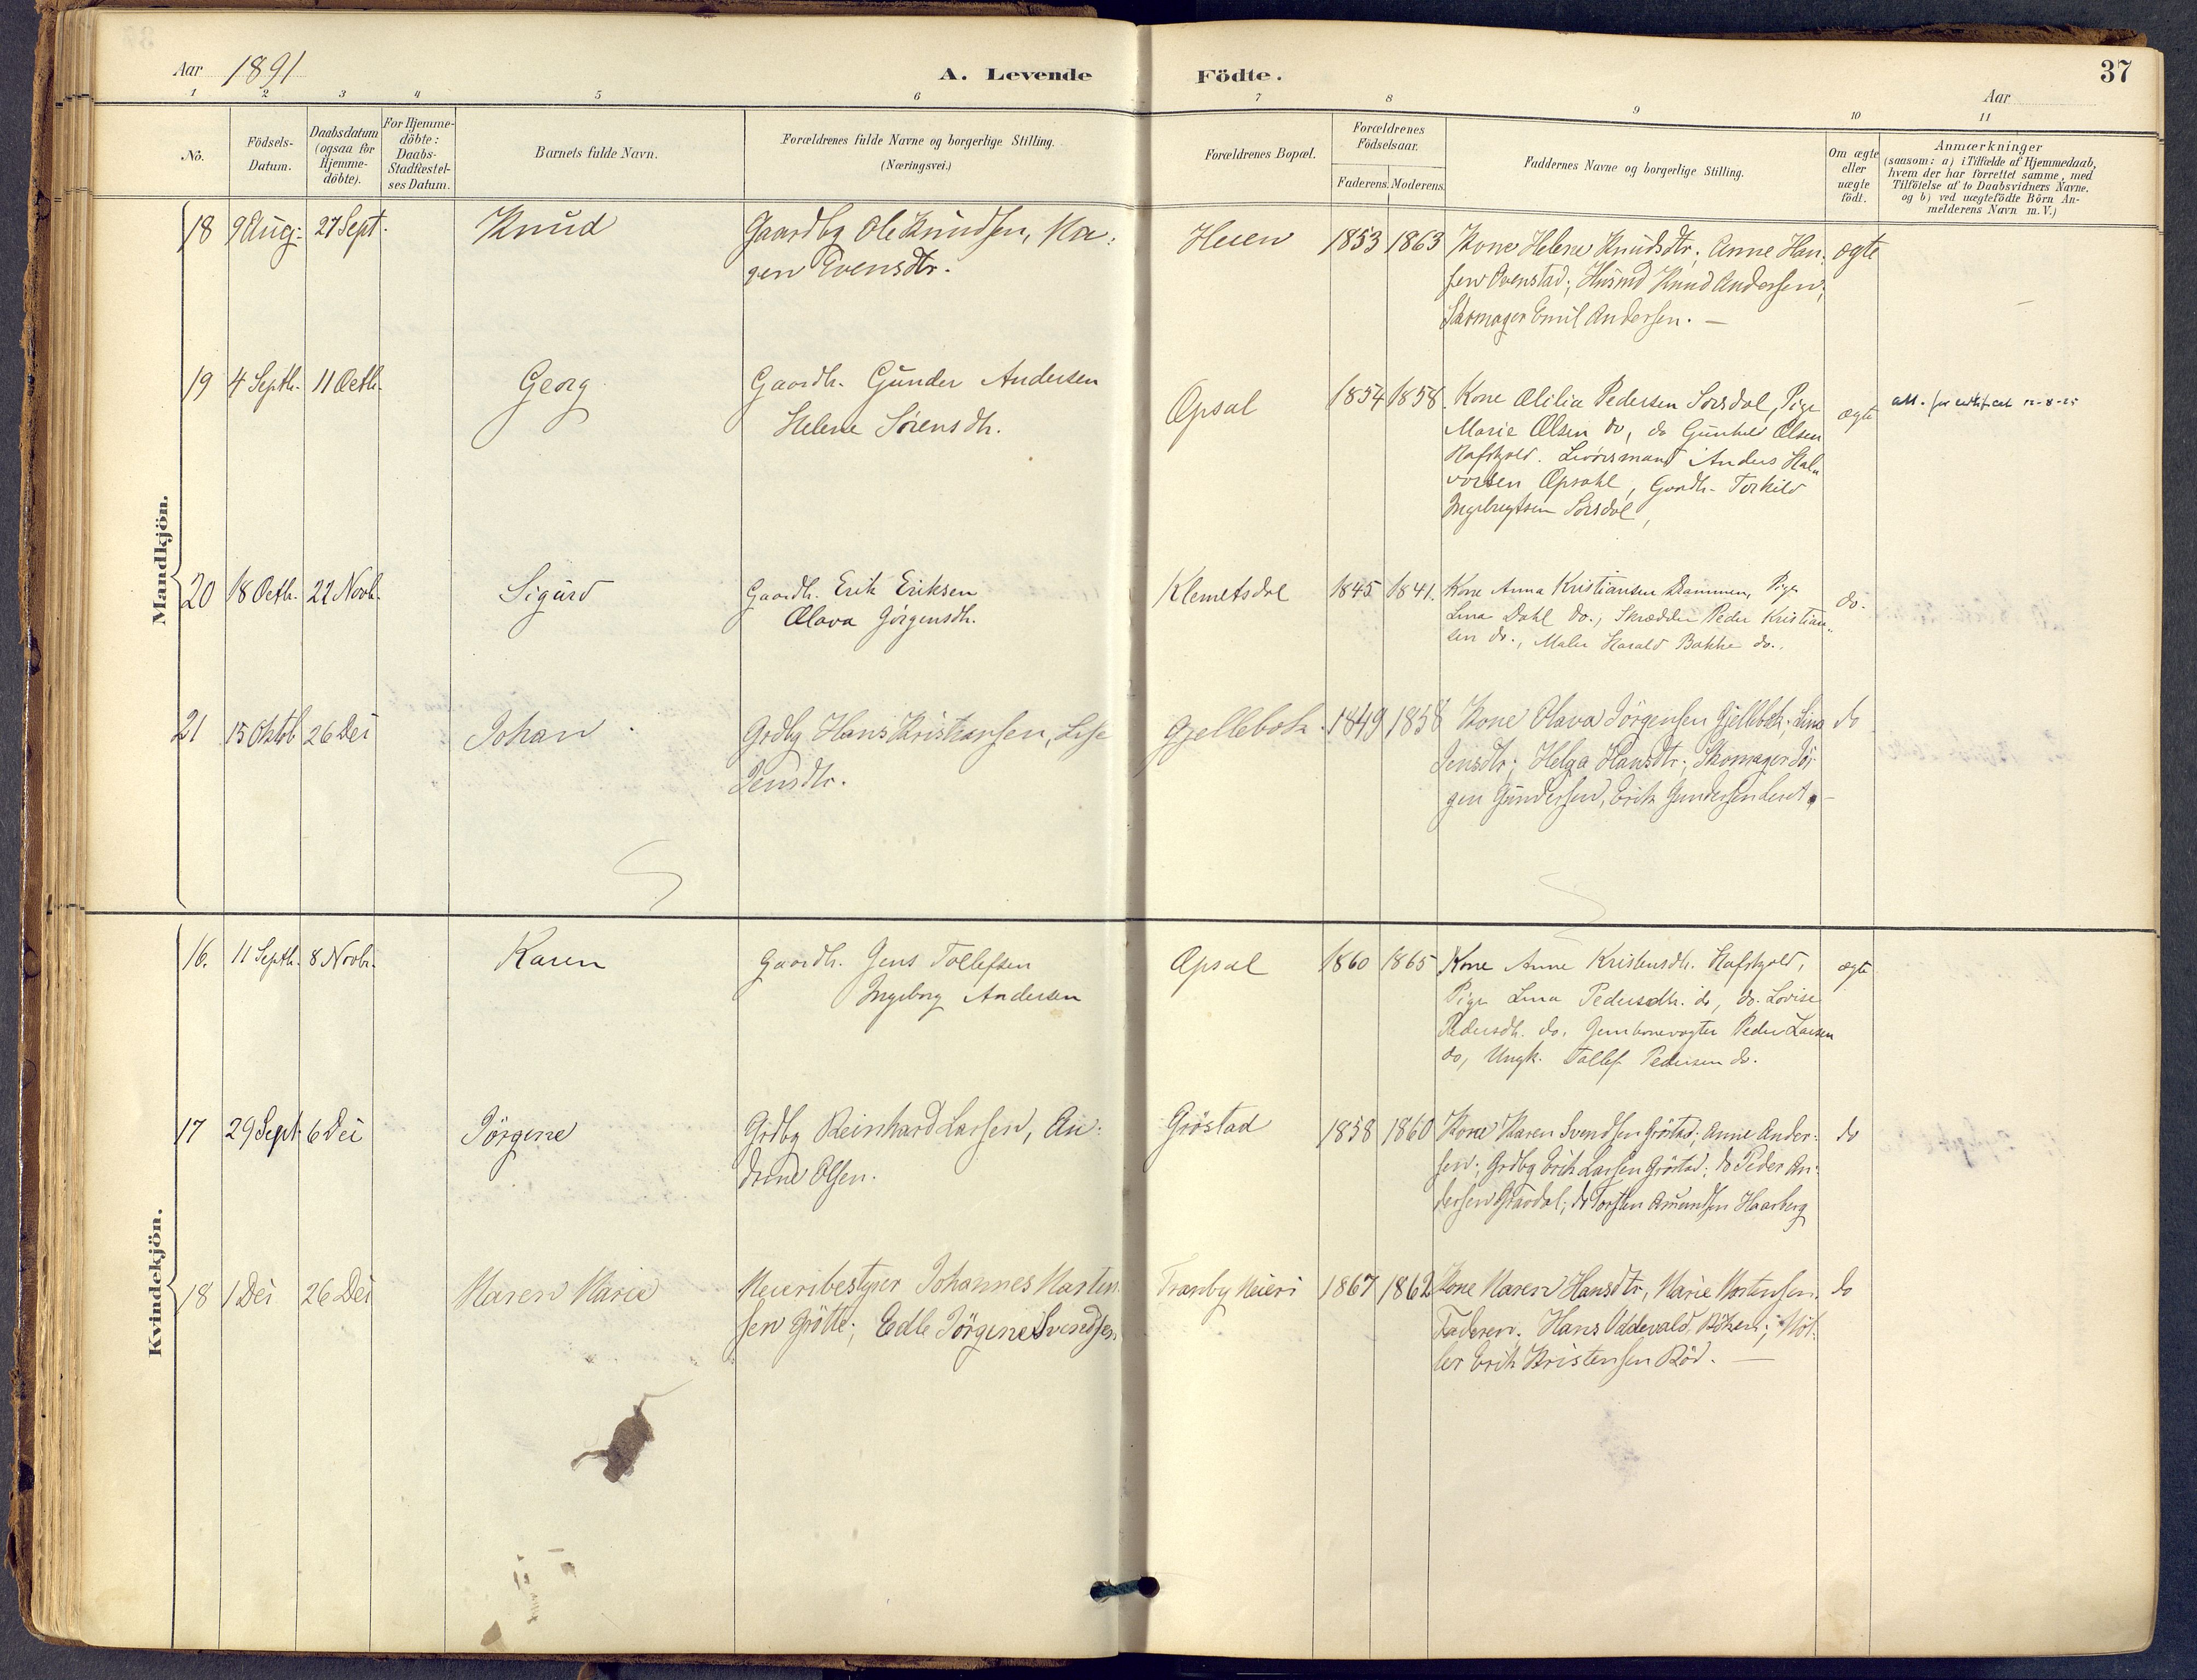 Aar 1891
A. Levende
Födte.
37
Aar
1 2 3 4 5 6 7 8 9 10 11
No.
Födsels-
Datum.
Daabsdatum
(ogsaa for
Hjemme-
döbte).
For Hjemme-
döbte:
Daabs-
Stadfæstel-
ses Datum.
Barnets fulde Navn.
Forældrenes fulde Navne og borgerlige Stilling.
(Næringsvei.)
Forældrenes Bopæl.
Forældrenes
Födselsaar.
Faderens. Moderens.
Faddernes Navne og borgerlige Stilling.
Om ægte
eller
uægte
födt.
Anmærkninger
(saasom: a) i Tilfælde af Hjemmedaab,
hvem der har forrettet samme, med
Tilföielse af to Daabsvidners Navne.
og b) ved uægtefödte Börn An-
melderens Navn m. V.)
Mandkjön.
18 9 Aug: 27 Sept.
Knud
Gaardbg Ole Knudsen, Ka:
ren Evensdtr.
1853 1863
Kone Helene Knudsdtr; Anne Han:
sen Ovenstad; Husmd Knud Andersen;
Skomager Emil Andersen. —
ægte
19 4 Septb. 11 Octb.
Georg
Gaardb. Gunder Andersen
Helene Sörensdtr.
Opsal
1854 1858.
Kone Olilia Pedersen Sørsdal, Pige
Marie Olsen do, do Gunhild Olsen
Rafskjold. Anders Hal
vorsen Opsahl, Gaardb. Torkild
Ingebrigtsen Sørsdal,
ægte
att. 12-8-25
20 18 Octb. 22 Novb.
Sigurd
Gaardb. Erik Eriksen
Olava Jörgensdtr.
Klemetsdal
1845 1841.
Kone Anna Kristiansen Drammen, Pige
Lina Dahl do., Skrædder Peder Kristian-
sen do., Maler Harald Bakke do..
do.
21 15 Oktob 26 Dec
Johan
Grdbg Hans Kristiansen, Lise
Jensdtr.
Gjellebek.
1849 1858
Kone Olava Jörgensen Gjellebek; Lina
Jensdtr; Helga Hansdtr; Skomager Jör
gen Gundersen, Erik Gundersen
do
Kvindekjön.
16. 11 Septb. 8 Novbr.
Karen
Gaardb. Jens Tollefsen
Ingeborg Andersen
Opsal
1860 1865
Kone Anne Kristensdtr. Rafskjold,
Pige Lina Pedersdtr. do, do. Lovise
Pedersdtr. do. Jernbanevogter Peder Larsen
do, Ungk. Tollef Pedersen do.
ægte
17 29 Sept 6 Dec
Jörgine
Grdbg Reinhard Larsen, An:
drine Olsen.
Gröstad
1858 1860
Kone Karen Svendsen Gröstad; Anne Ander:
sen; Grdbg Erik Larsen Gröstad; do Peder An:
dersen; do Torsten Amundsen Haarberg
do
18 1 Dec 26 Dec
Maren Marie
Meieribestyrer Johannes Marten
sen Grötte; Edle Jörgine Svendsen
Tranby Meieri
1867 1862
Kone Maren Hansdtr, Marie Mortensen.
Faderen; Hans Uddevald, Röken; Möl:
ler Erik Kristensen Röd. —
do